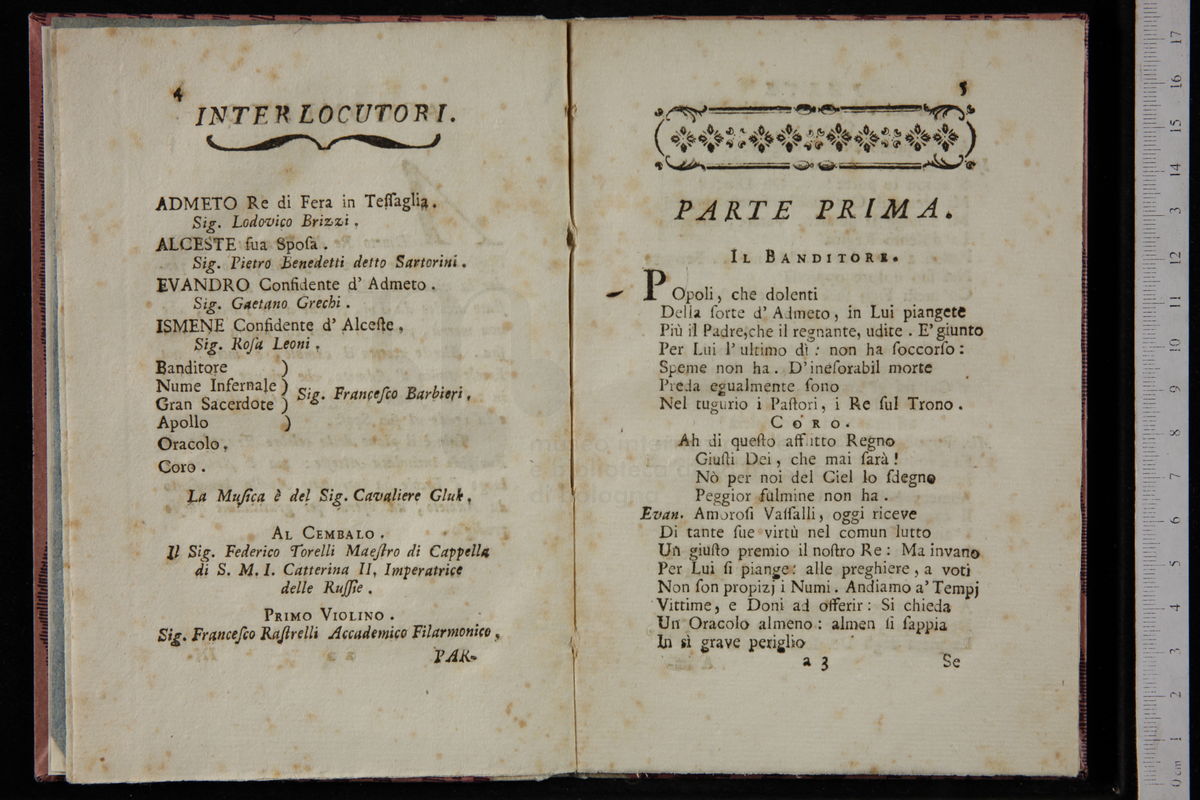 4
INTERLOCUTORI.
ADMETO Re di Fera in Teſſaglia.
Sig. Lodovico Brizzi.
ALCESTE ſua Spoſa.
Sig. Pietro Benedetti detto Sartorini.
EVANDRO Confidente d' Admeto.
Sig. Gaetano Grechi.
ISMENE Confidente d' Alceſte,
Sig. Roſa Leoni.
Banditore )
Nume Infernale )
Gran Sacerdote ) Sig. Franceſco Barbieri,
Apollo )
Oracolo,
Coro.
La Muſica è del Sig. Cavaliere Gluk,
AL CEMBALO.
Il Sig. Federico Torelli Maeſtro di Cappella
di S. M. I. Catterina II, Imperatrice
delle Ruſſie.
PRIMO VIOLINO.
Sig. Franceſco Raſtrelli Accademico Filarmonico,
PAR-
5
PARTE PRIMA.
IL BANDITORE.
POpoli, che dolenti
Della ſorte d' Admeto, in Lui piangete
Più il Padre, che il regnante, udite. E' giunto
Per Lui l' ultimo dì: non ha ſoccorſo:
Speme non ha. D' ineſorabil morte
Preda egualmente ſono
Nel tugurio i Paſtori, i Re ſul Trono.
CORO.
Ah di queſto afflitto Regno
Giuſti Dei, che mai ſarà!
Nò per noi del Ciel lo ſdegno
Peggior fulmine non ha.
Evan. Amoroſi Vaſſalli, oggi riceve
Di tante ſue virtù nel comun lutto
Un giuſto premio il noſtro Re: Ma invano
Per Lui ſi piange: alle preghiere, a voti
Non ſon propizj i Numi. Andiamo a' Tempj
Vittime, e Doni ad offerir: Si chieda
Un Oracolo almeno: almen ſi ſappia
In sì grave periglio
a 3 Se